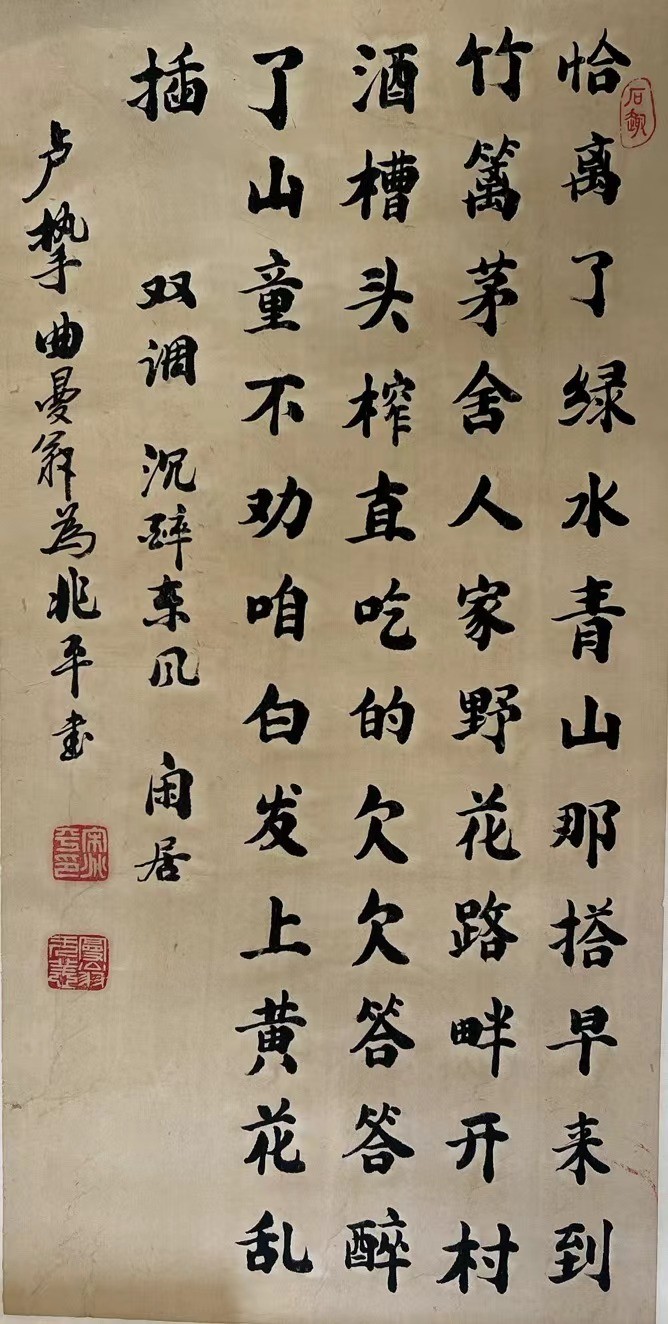 石趣
恰离了绿水青山那搭早来到
竹篱茅舍人家野花路畔开村
酒槽头榨直吃的欠欠答答醉
了山童不劝咱白发上黄花乱
插 双调 沉醉东风 闲居
卢挚曲曼翁为兆平书